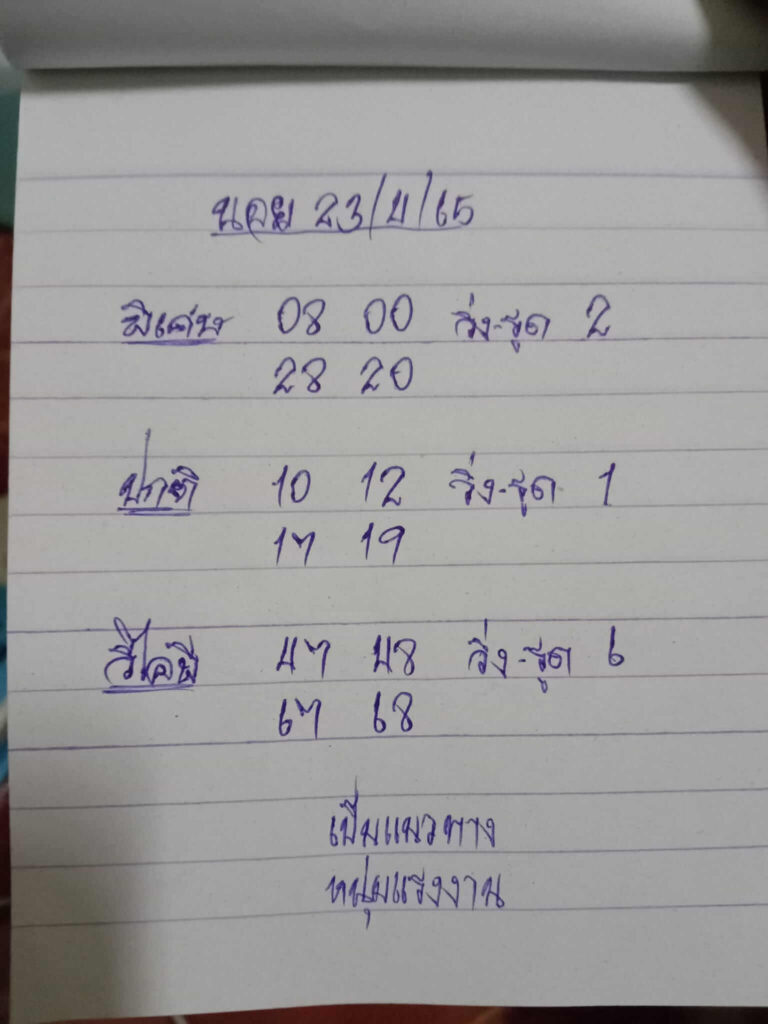 นอย 23/4/65
พิเศษ 08 00 วิ่ง-รูด 2
28 20
ปกติ 10 12 วิ่ง-รูด 1
17 19
วีไอพี 47 48 วิ่ง-รูด 6
67 68
เป็นแนวทาง
หนุ่มแรงงาน